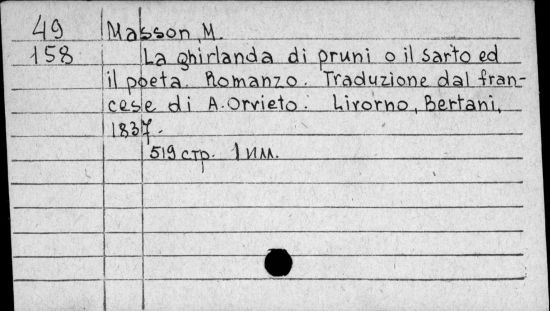 49 Masson, M.
158 La ghirlanda di pruni o il sarto ed
il poeta. Romanzo. Traduzione dal fran-
cese di A. Orvieto. Livorno, Bertani,
1837.
519 стр. 1 илл.